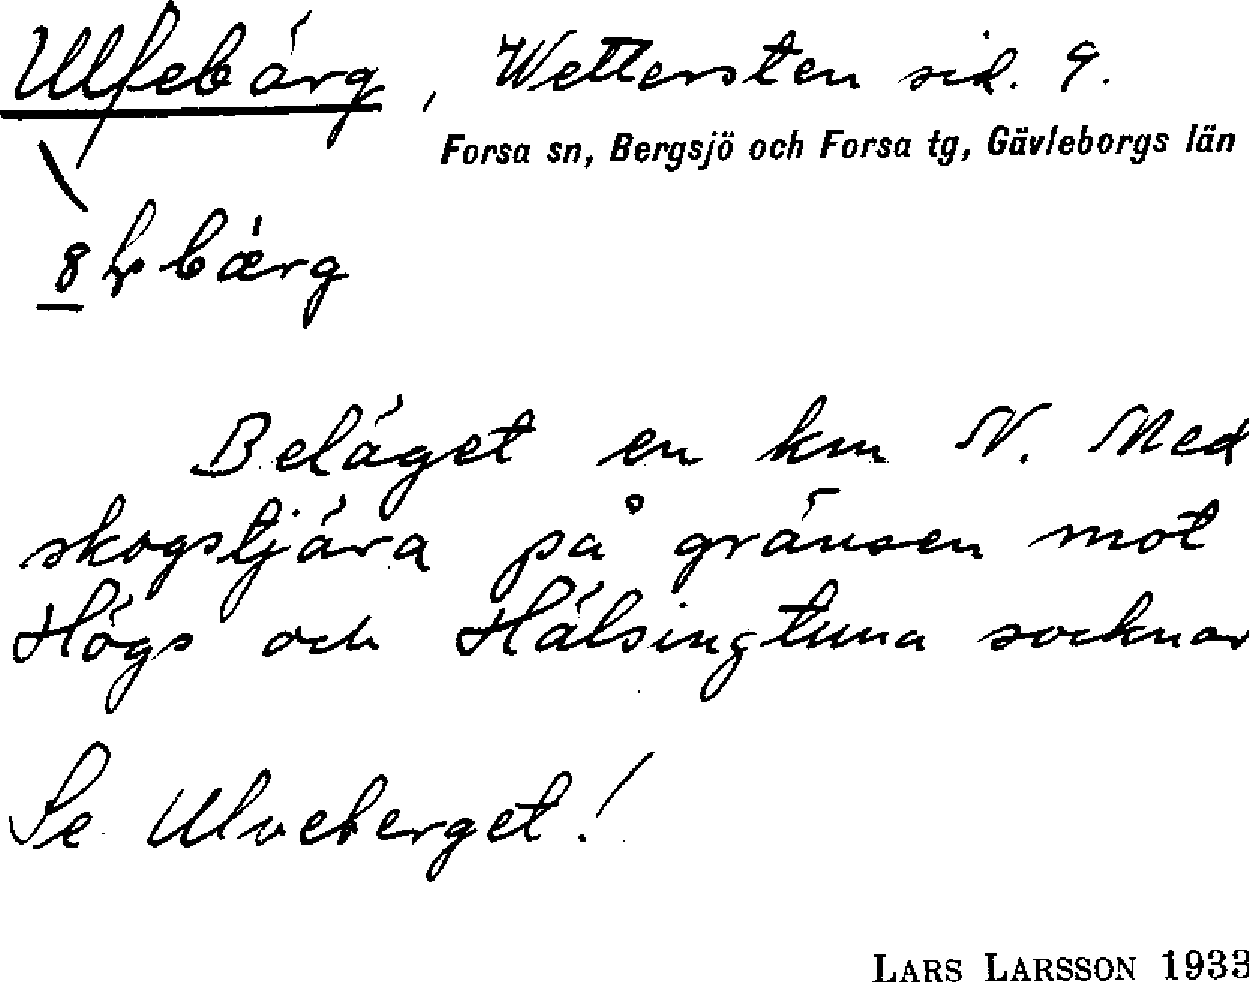 Ulfebärg, Wettersten sid. 9.
Forsa sn, Bergsjö och Forsa tg, Gävleborgs län
bærg
Beläget en km N. Med
skogstjära på gränsen mot
Högs och Hälsingtuna socknar
Se Ulveberget!
LARS LARSSON 1933